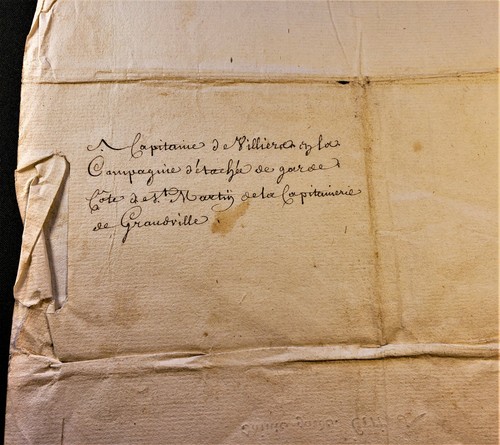 Capitaine de Villiers en la
Compagnie détachée de garde
Côte de St. Martin de la Capitainerie
de Grandville